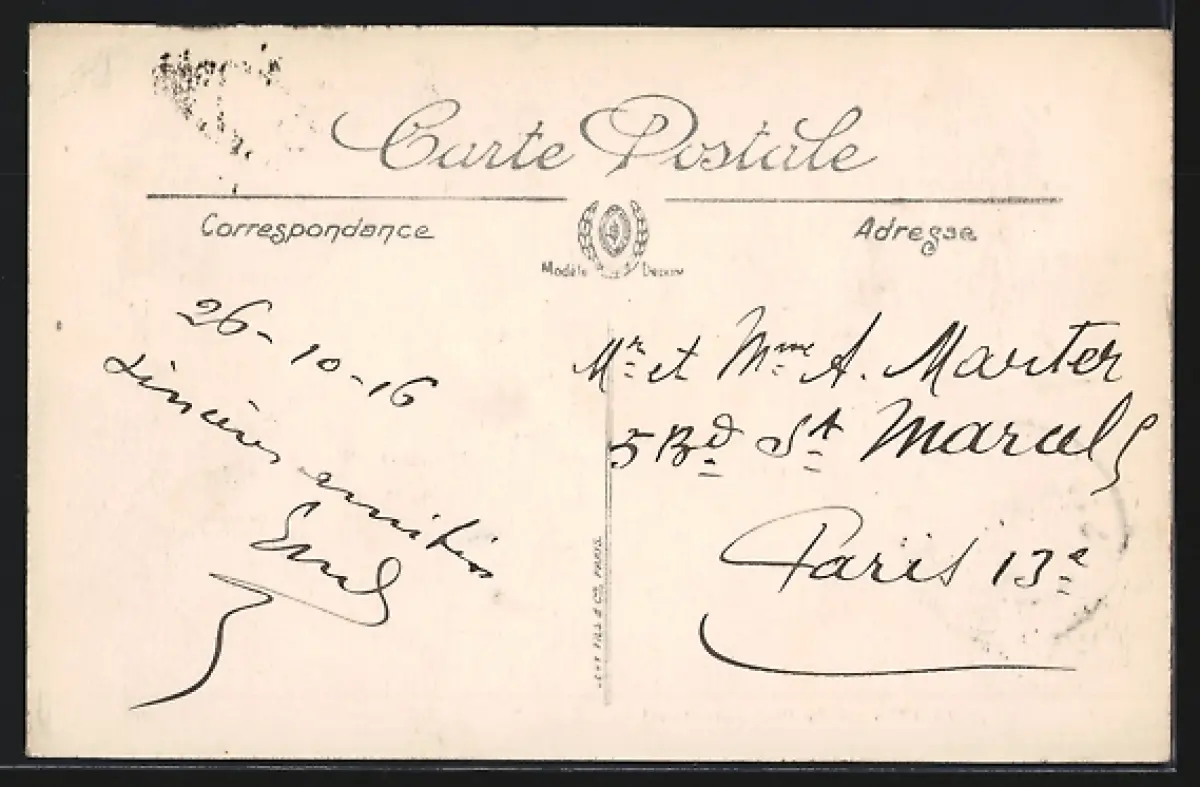 Carte Postale
Correspondance
Adresse
Modèle Déposé
26-10-16
Sincères amitiés
Mr et Mme A. Marter
5 Bd St Marcel
Paris 13e
FILS & Cie PARIS